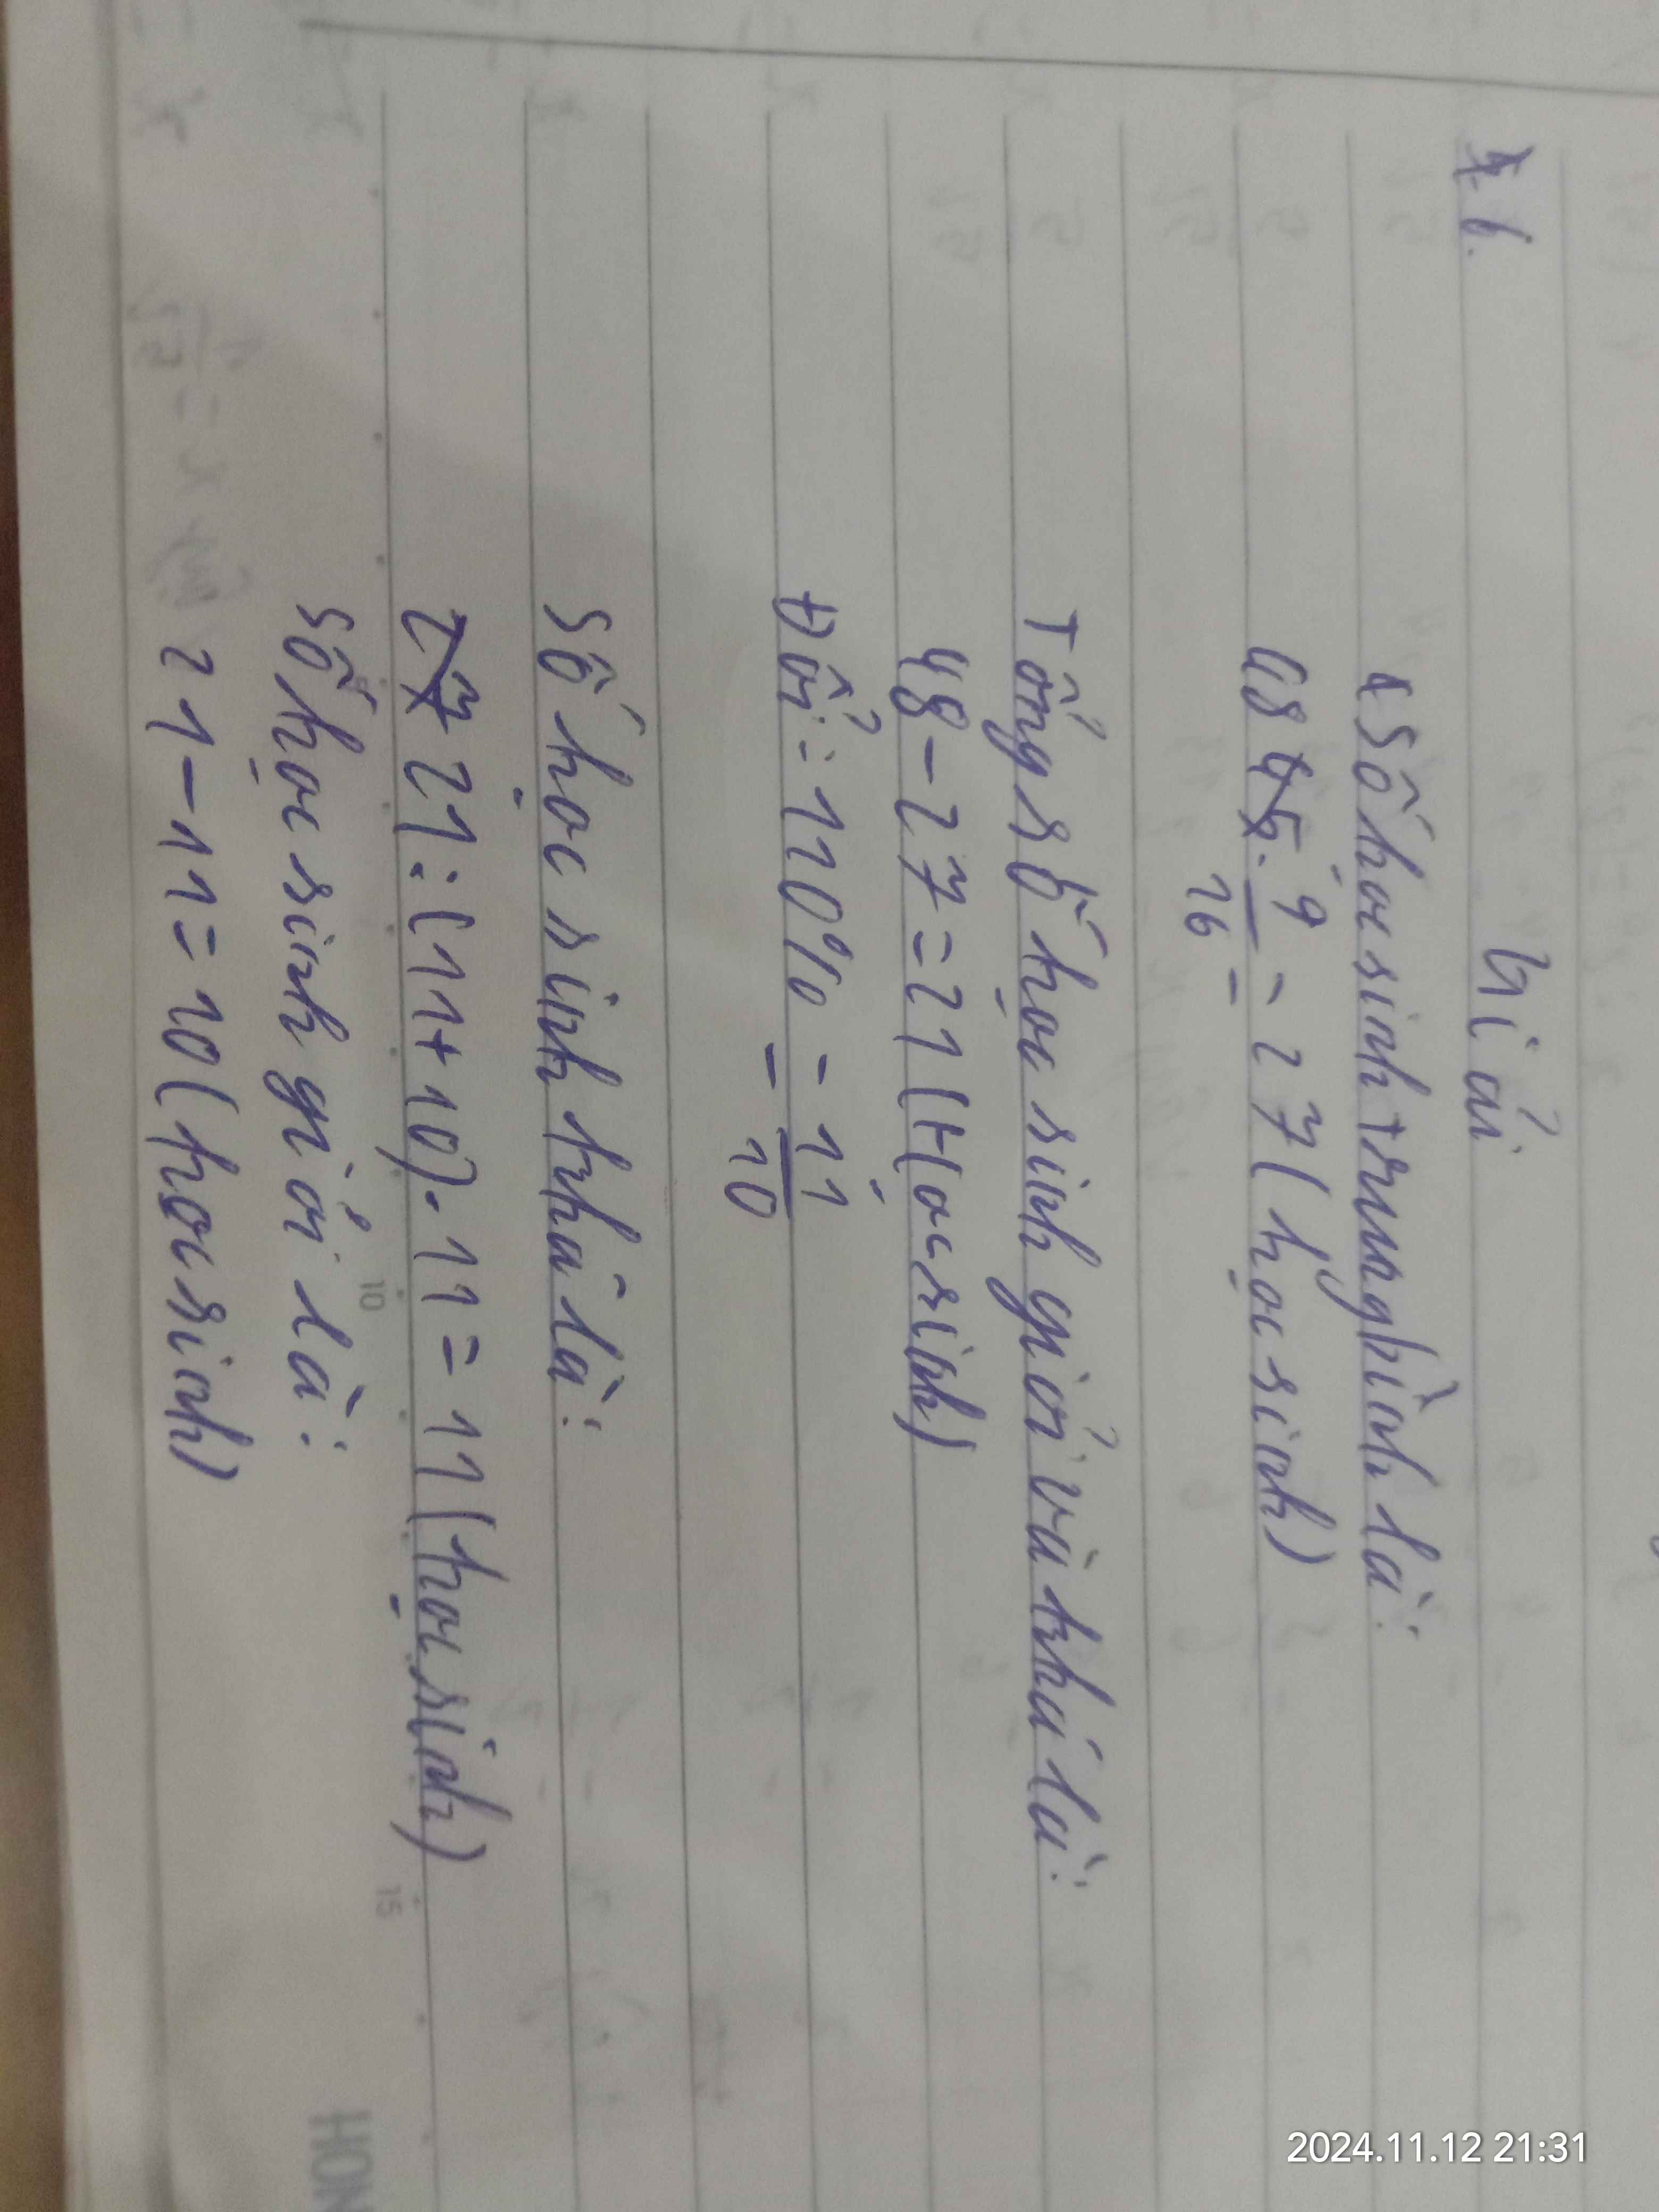 6.
Giải
Số học sinh trung bình là:
48 . 9/16 = 27 (học sinh)
Tổng số học sinh giỏi và khá là:
48 - 27 = 21 (Học sinh)
Đổi: 110% = 11/10
Số học sinh khá là:
21 : (11 + 10) . 11 = 11 (học sinh)
Số học sinh giỏi là:
21 - 11 = 10 (học sinh)
10
15
HON
2024.11.12 21:31